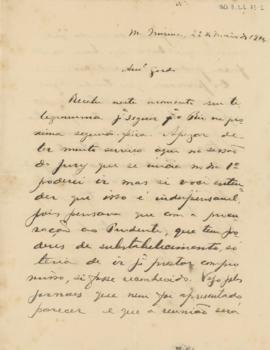 M. Mirim, 22 de Maio de
Am.º Gordo
Recebi neste momento seu te
legramma p.ª seguir p.ª o Rio na pro
xima segunda-feira. Apezar de
ter muito serviço aqui na sessão
do Jury que se inicia no dia 1º
poderei ir mas si você enten
der que isso é indispensavel,
pois pensava que com a procu
ração ao Prudente, que tem po
deres de substabelecimento, só
teria de ir p.ª prestar compro
misso, si fosse reconhecido. Vejo pelos
jornaes que nem foi apresentado
parecer e que a reunião será